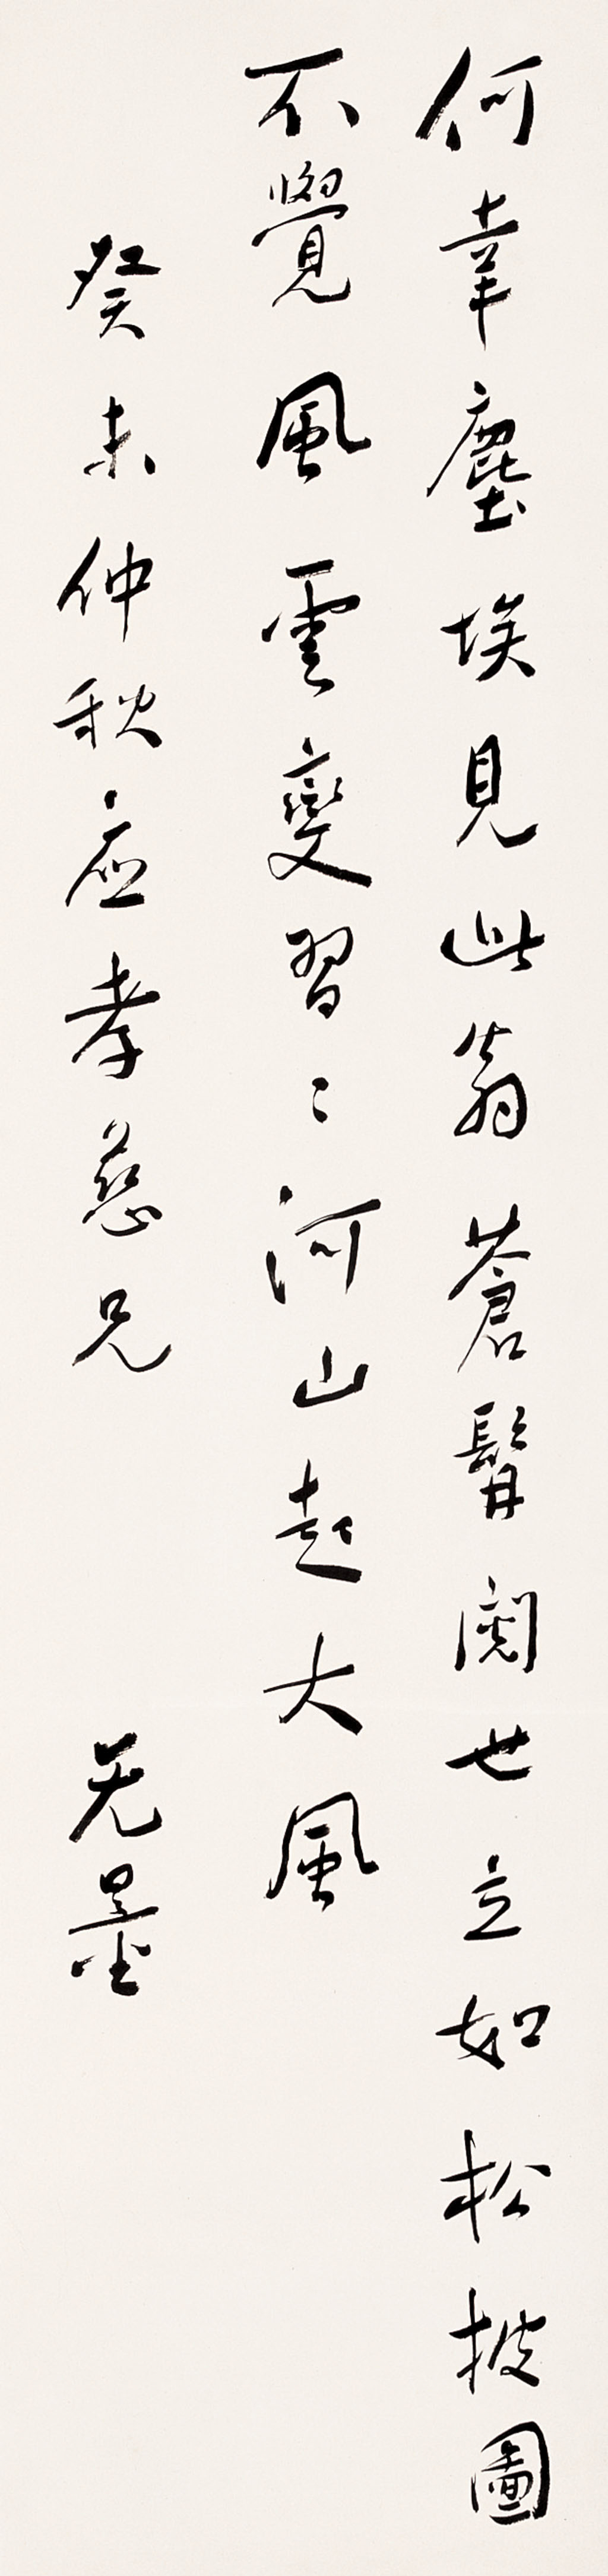 何幸塵埃見此翁蒼髯閱世立如松披圖
不覺風雲變習〻河山起大風
癸未仲秋應孝慈兄　无量